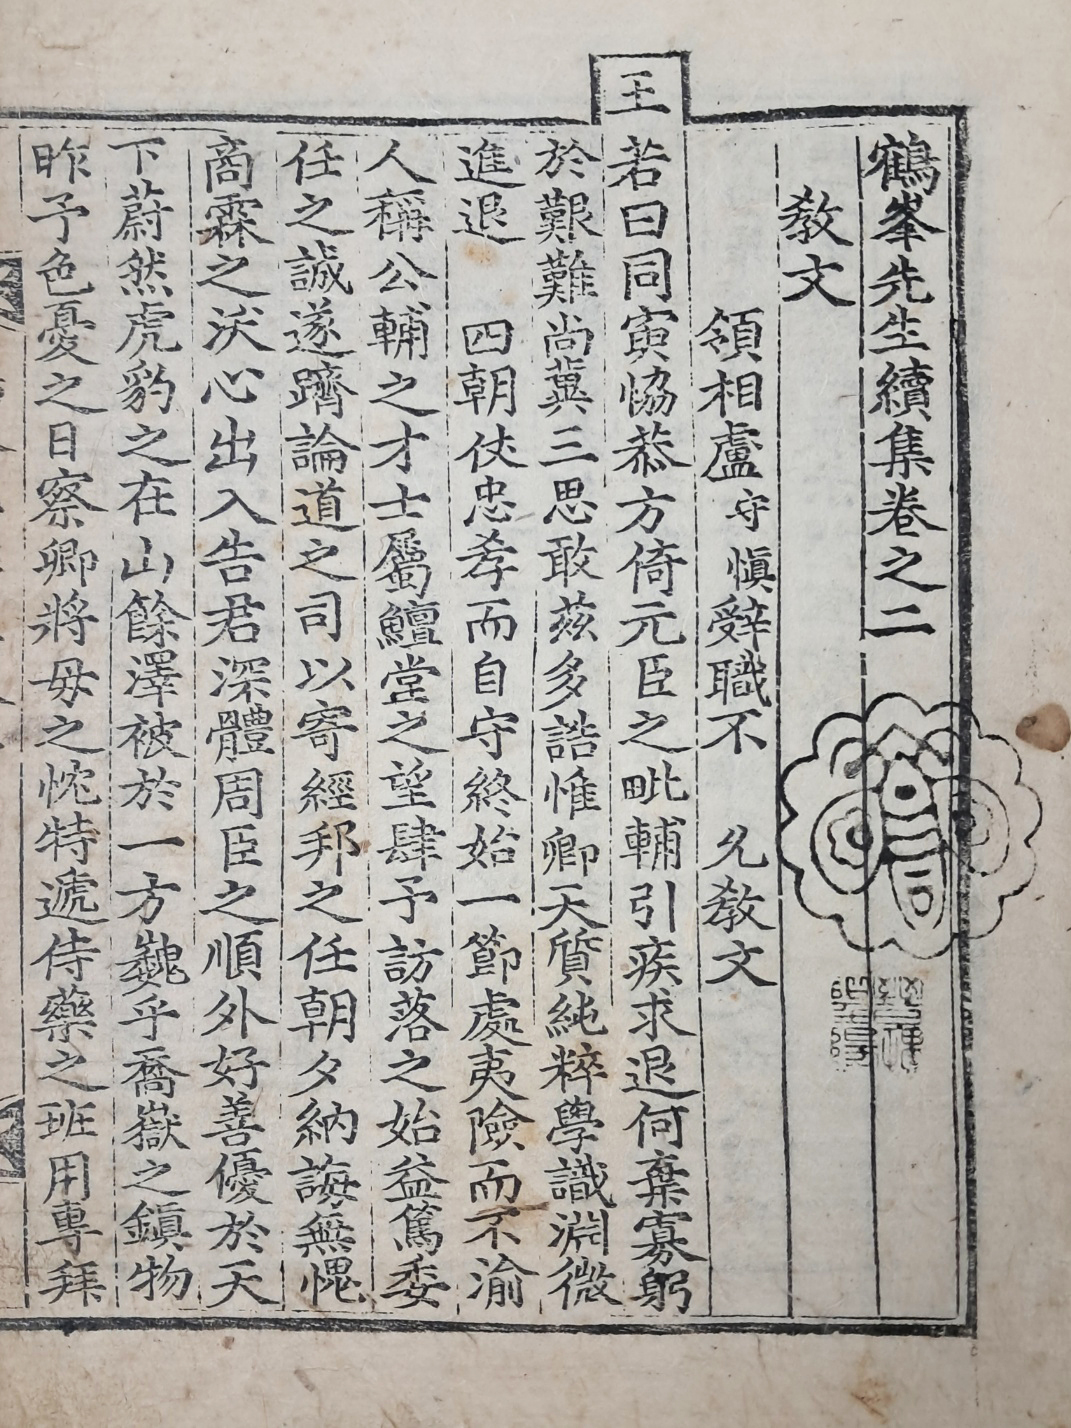 鶴峯先生續集卷之二
敎文
領相盧守愼辭職不 允敎文
王若曰同寅恊恭方倚元臣之毗輔引疾求退何棄寡躬
於艱難尚冀三思敢茲多誥惟卿天質純粹學識淵微
進退 四朝仗忠孝而自守終始一節處夷險而不渝
人稱公輔之才士屬鱣堂之望肆予訪落之始益篤委
任之誠遂躋論道之司以寄經邦之任朝夕納誨無愧
商霖之沃心出入告君深體周臣之順外好善優於天
下蔚然虎豹之在山餘澤被於一方巍乎喬嶽之鎭物
昨予色憂之日察卿將母之忱特遞侍藥之班用專拜